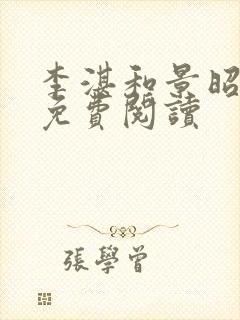 李湛和景昭
免費閱讀
張學曾